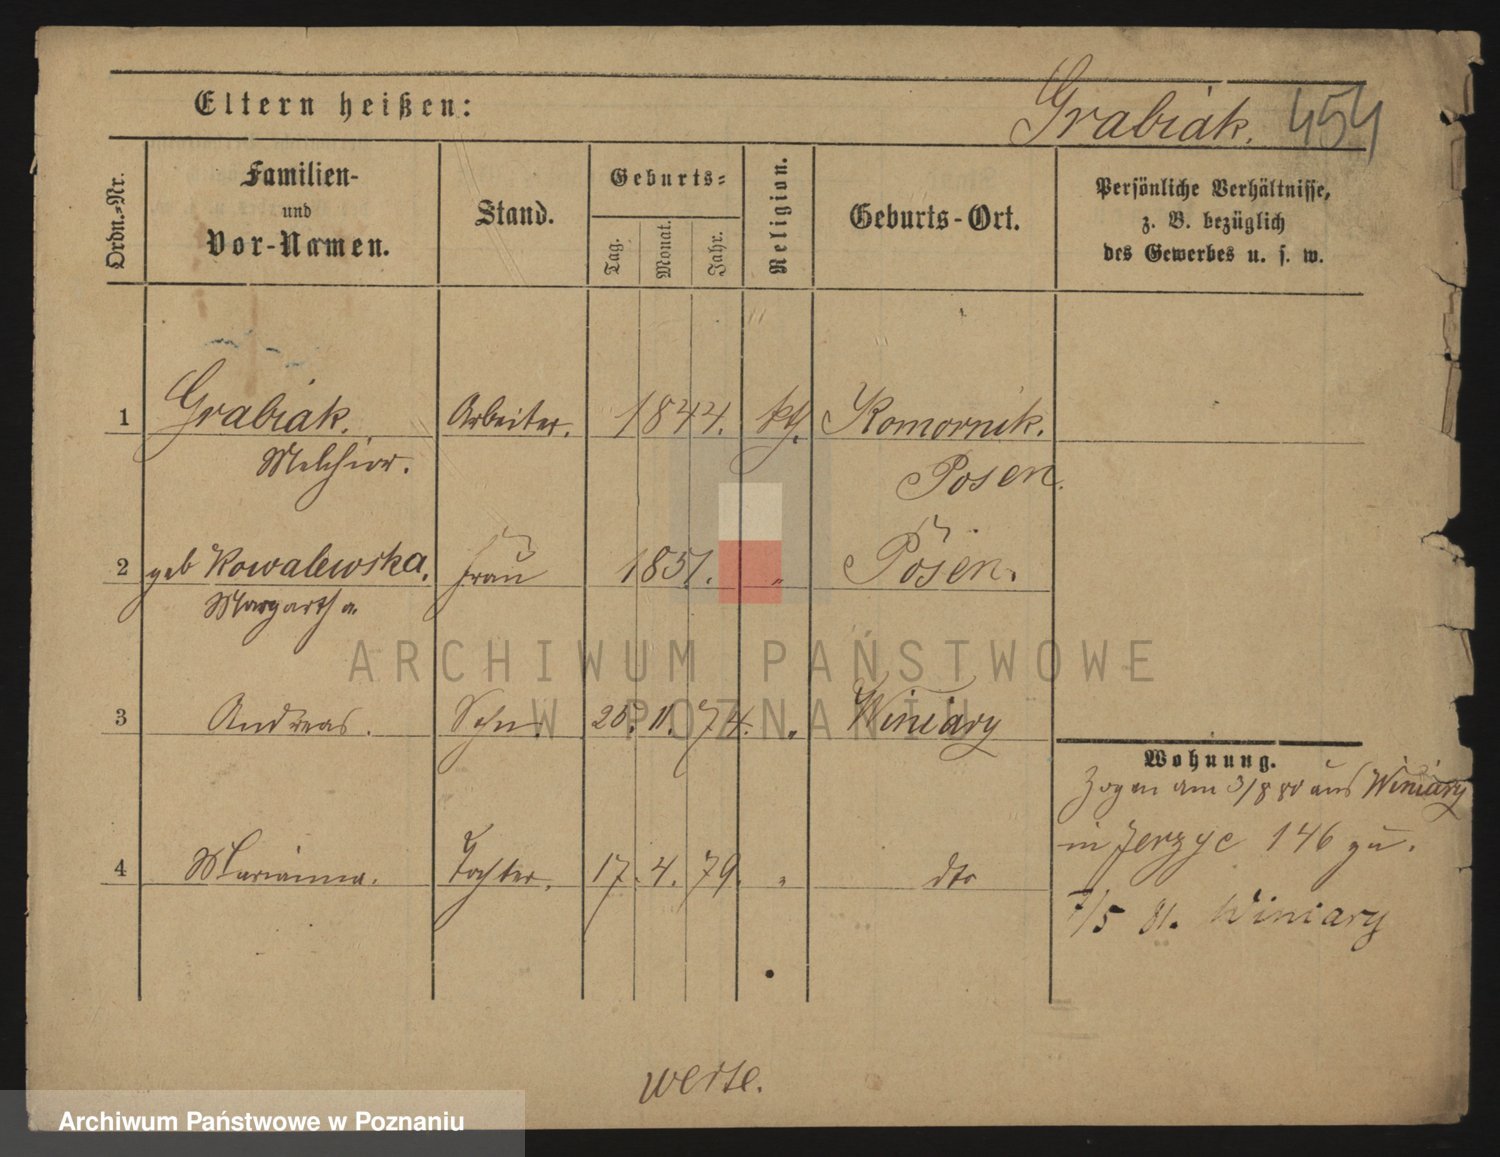 Eltern heißen:
Grabiak. 454
Ordn.-Nr.
Familien-
und
Vor-Namen.
Stand.
Geburts-
Tag.
Monat.
Jahr.
Religion.
Geburts-Ort.
Persönliche Verhältnisse,
z. B. bezüglich
des Gewerbes u. s. w.
1 Grabiak. Arbeiter. 1844. kth. Komornik.
Melchior. Posen.
2 geb Kowalewska. Frau 1851. " Posen.
Margartha
3 Andreas. Sohn. 20. 11. 74. " Winiary
Wohnung.
Zogen am 3/8 80 aus Winiary
in Jerzyc 146 zu.
4 Marianna. Tochter. 17. 4. 79. " dto
7/5 81. Winiary
werse.
ARCHIWUM PAŃSTWOWE
W POZNANIU
Archiwum Państwowe w Poznaniu